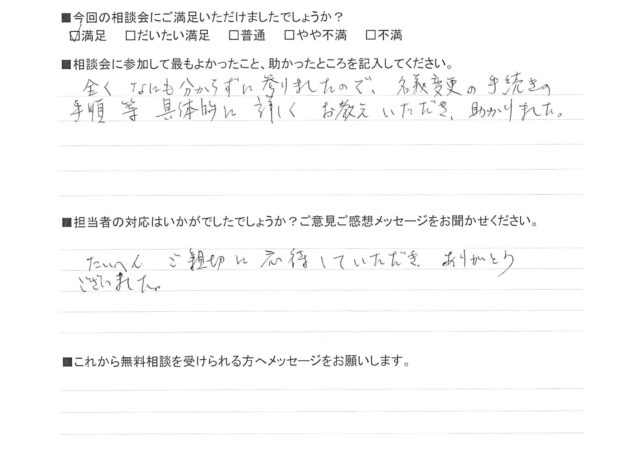 ■今回の相談会にご満足いただけましたでしょうか？
☑満足 □だいたい満足 □普通 □やや不満 □不満
■相談会に参加して最もよかったこと、助かったところを記入してください。
全くなにも分からずに参りましたので、名義変更の手続きの
手順等具体的に詳しくお教えいただき、助かりました。
■担当者の対応はいかがでしたでしょうか？ご意見ご感想メッセージをお聞かせください。
たいへんご親切に応待していただきありがとう
ございました。
■これから無料相談を受けられる方へメッセージをお願いします。